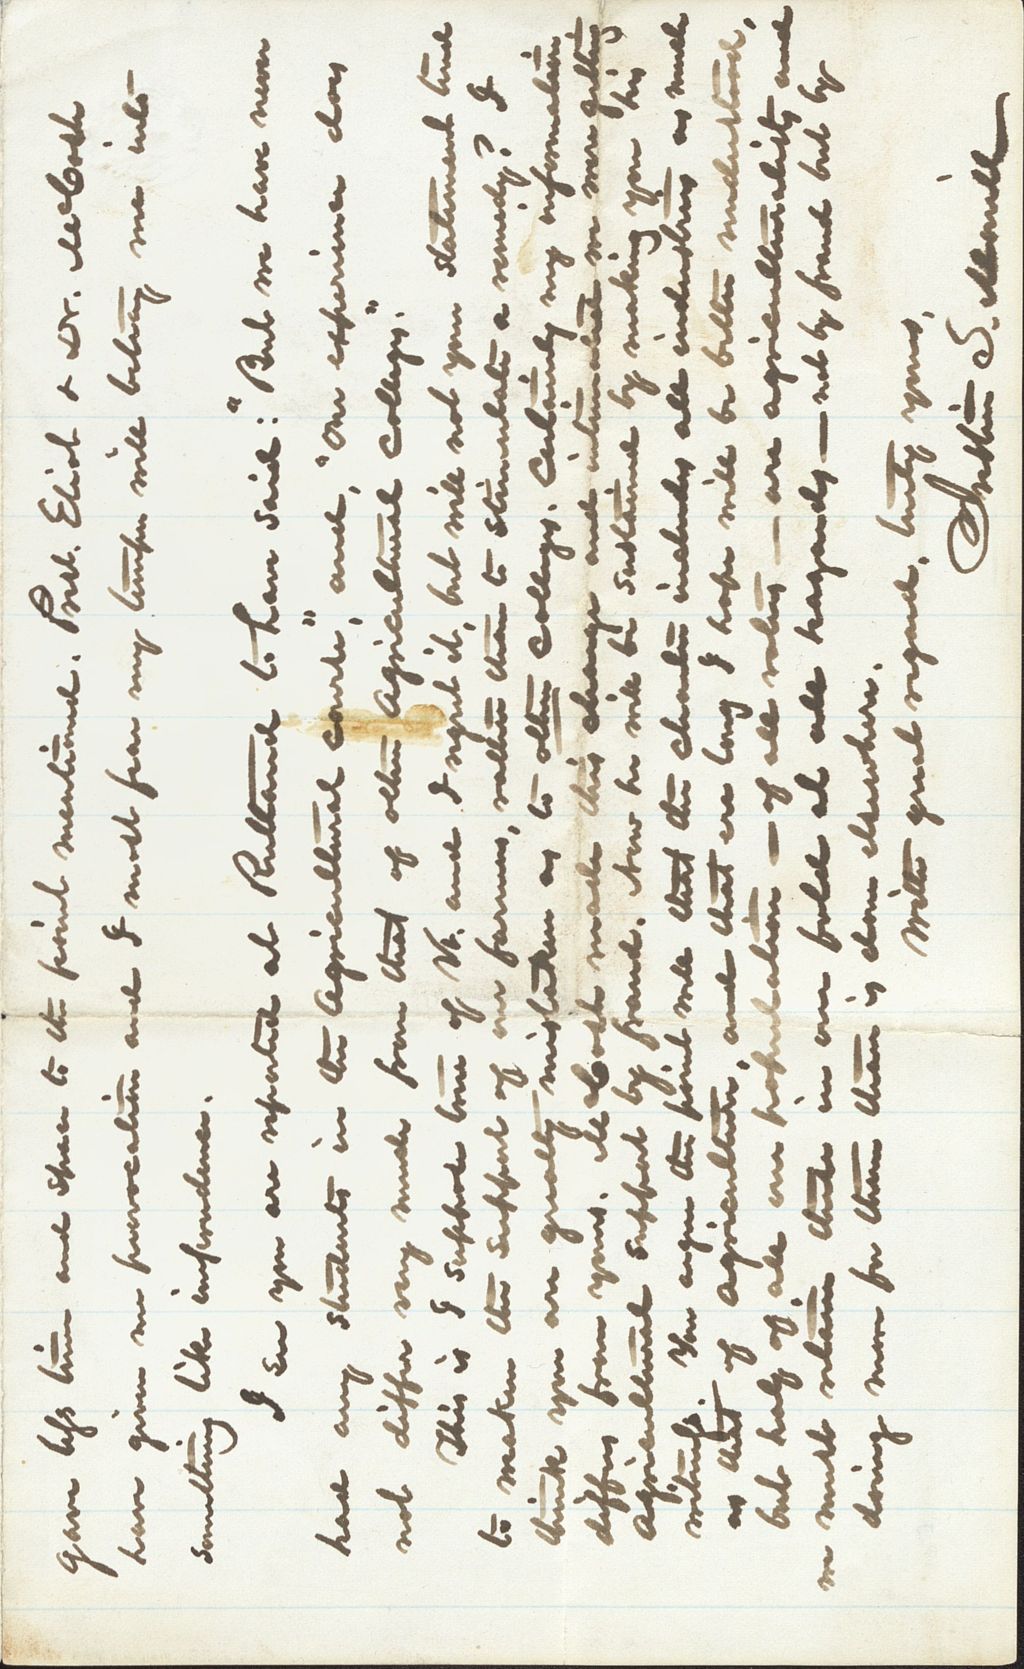 gave less time and space to the point mentioned. Prest. Eliot & Dr. McCosh
have given me provocation and I most fear my temper will betray me into
something like imprudence.
I see you are reported at Rutland to have said: "But we have never
had any students in the Agricultural course," and, "Our experience does
not differ very much from that of other Agricultural colleges."
This is I suppose true of Vt. and I regret it, but will not your statement tend
to weaken the support of our farmers, rather than to stimulate a remedy? I
think you are greatly mistaken as to other colleges. Certainly my information
differs from yours. McCosh made this charge and intimated we were getting
Agricultural support by fraud. Now he will be sustained by making you his
witness. You argue the point well that the charter includes all industries as much
as that of agriculture, and that ere long I hope will be better understood,
but half of all our population — of all voters — are agriculturalists and
we must retain these in our fold at all hazards — not by fraud but by
doing more for them than is done elsewhere.
With great regard, truly yours,
Justin S. Morrill